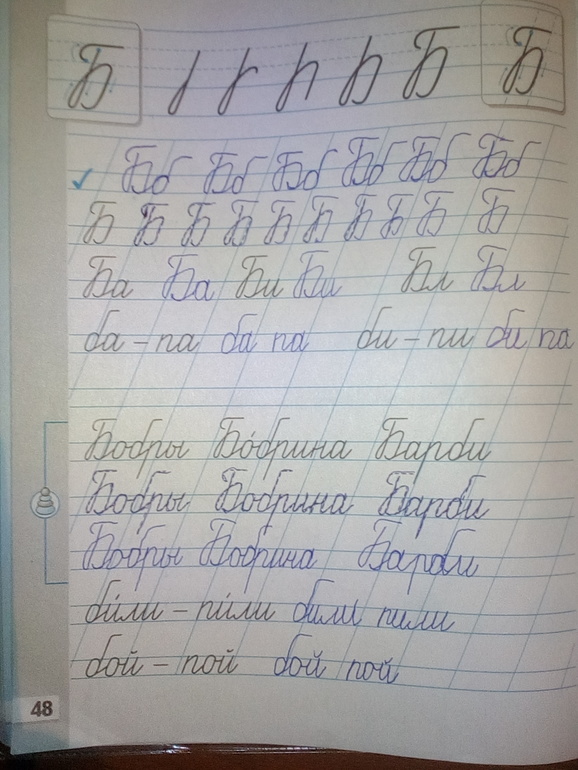 Б Б Б
Бб Бб Бб Бб Бб Бб
Б Б Б Б Б Б Б Б Б Б
Ба Ба Би Би Бл Бл
ба – па ба па би – пи би па
Бобры Бо́брина Барби
Бобры Бобрина Барби
Бобры Бобрина Барби
би́ли – пи́ли били пили
бой – пой бой пой
48